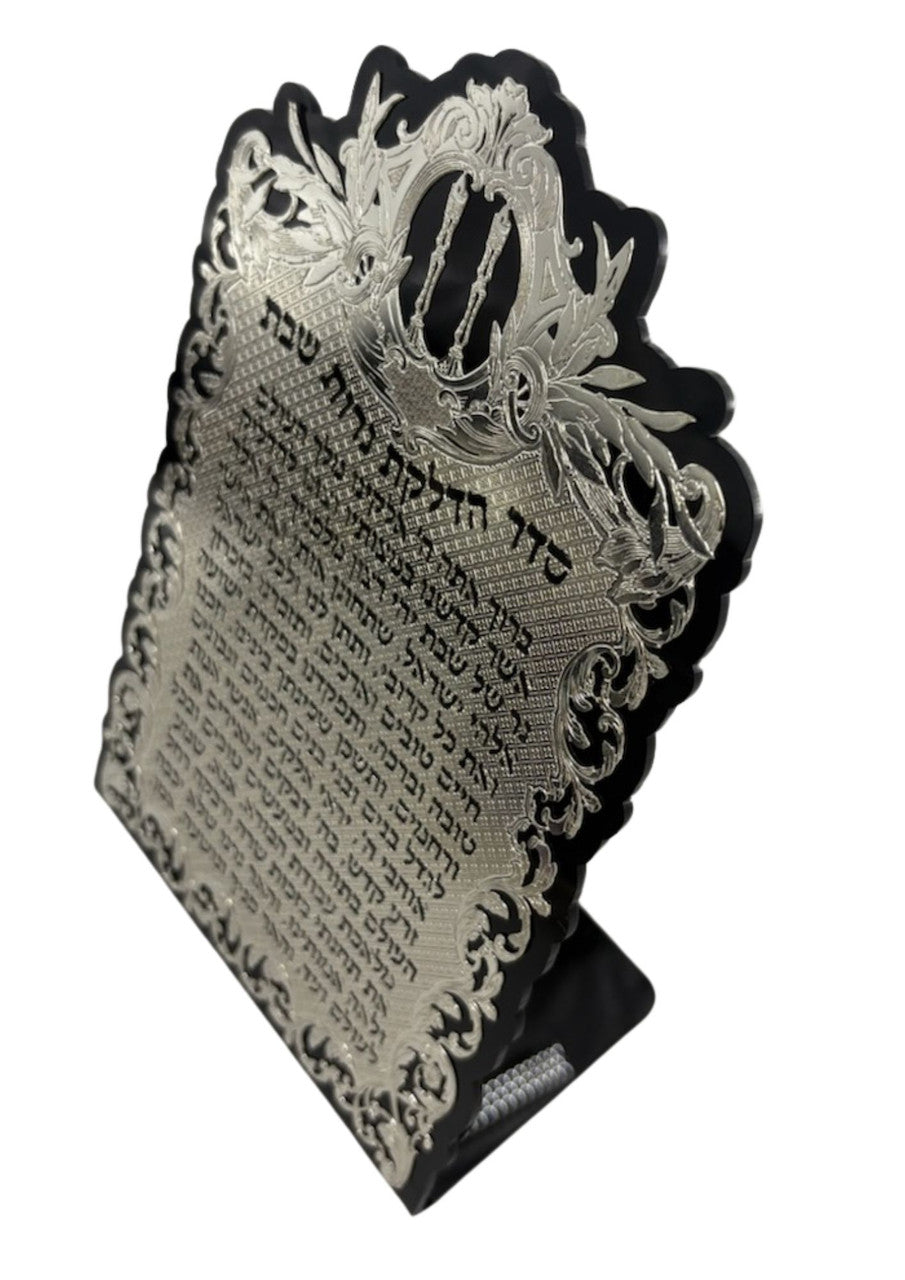 סדר הדלקת נרות שבת
ברוך אתה ה' אלקינו מלך העולם
אשר קדשנו במצותיו וצונו להדליק
נר של שבת יהי רצון מלפניך ה'
אלהי ישראל שתחונן אותי ואת אישי
ואת כל קרובי, ותתן לנו ולכל ישראל
חיים טובים וארוכים, ותזכרנו בזכרון
טובה וברכה, ותפקדנו בפקודת ישועה
ורחמים, ותשכן שכינתך בינינו, וזכנו
לגדל בנים ובני בנים חכמים ונבונים
אוהבי ה', יראי אלקים, אנשי אמת
זרע קדש, בה' דבקים, ומאירים את
העולם בתורה ובמעשים טובים ובכל
מלאכת עבודת הבורא. אנא, שמע
את תחנתי בזכות שרה ורבקה רחל
ולאה אמותינו, והאר
לעולם ועד, והאר